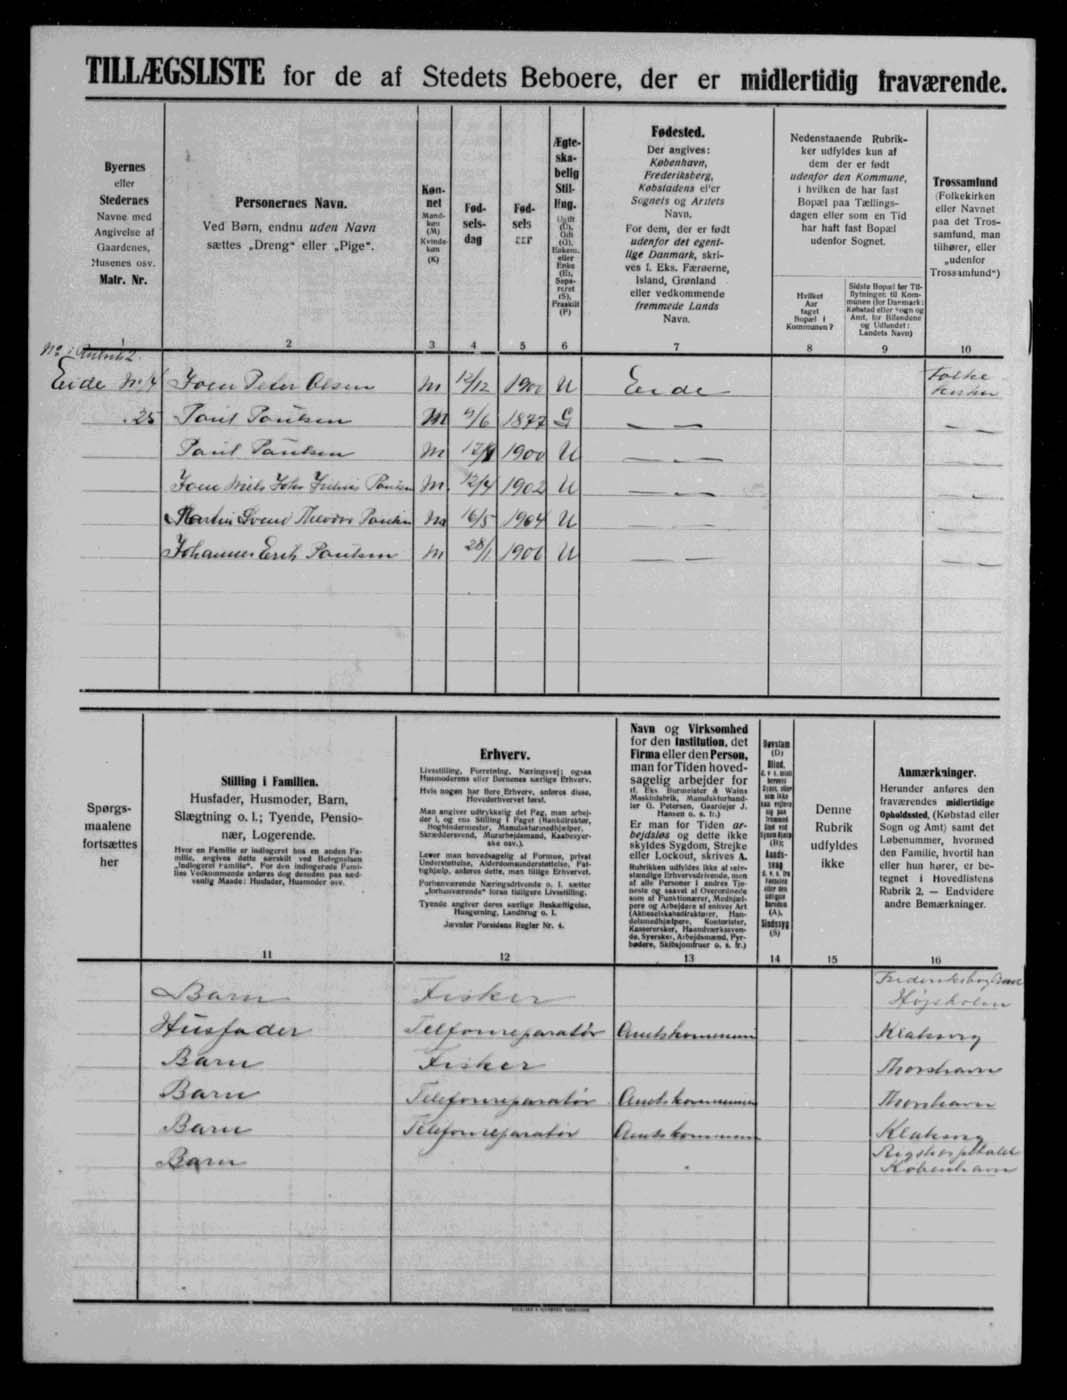 TILLÆGSLISTE for de af Stedets Beboere, der er midlertidig fraværende.
Byernes
eller
Stedernes
Navne med
Angivelse af
Gaardenes,
Husenes osv.
Matr. Nr.
Personernes Navn.
Ved Børn, endnu uden Navn
sættes „Dreng" eller „Pige".
Køn-
net
Mand-
køn
(M)
Kvinde-
køn
(K)
Fød-
sels-
dag
Fød-
sels
aar
Ægte-
ska-
belig
Stil-
ling.
Ugift
(U),
Gift
(G),
Enkem.
eller
Enke
(E),
Sepa-
reret
(S),
Fraskilt
(F)
Fødested.
Der angives:
København,
Frederiksberg,
Købstadens eller
Sognets og Amtets
Navn.
For dem, der er født
udenfor det egent-
lige Danmark, skri-
ves f. Eks. Færøerne,
Island, Grønland
eller vedkommende
fremmede Lands
Navn.
Nedenstaaende Rubrik-
ker udfyldes kun af
dem der er født
udenfor den Kommune,
i hvilken de har fast
Bopæl paa Tællings-
dagen eller som en Tid
har haft fast Bopæl
udenfor Sognet.
Hvilket
Aar
taget
Bopæl i
Kommunen?
Sidste Bopæl før Til-
flytningen til Kom-
munen (for Danmark:
Købstad eller Sogn og
Amt, for Bilandene
og Udlandet:
Landets Navn)
Trossamfund
(Folkekirken
eller Navnet
paa det Tros-
samfund, man
tilhører, eller
„udenfor
Trossamfund")
1 2 3 4 5 6 7 8 9 10
No i Rubrik 2
Eide No 14 Joen Peter Olsen M 12/12 1900 U Eide Folke
kirken
" 25 Poul Poulsen M 9/6 1877 G — " — — " —
Poul Poulsen M 1900 U — " — — " —
Poulsen M 12/4 1902 U — " — — " —
Martin Svend Theodor Poulsen M 16/5 1904 U — " — — " —
Johannes Erik Poulsen M 28/1 1906 U — " — — " —
Spørgs-
maalene
fortsættes
her
Stilling i Familien.
Husfader, Husmoder, Barn,
Slægtning o. l.; Tyende, Pensio-
nær, Logerende.
Hvor en Familie er indlogeret hos en anden Fa-
milie, angives dette særskilt ved Betegnelsen
„Indlogeret Familie". For den indlogerede Fami-
lies Vedkommende anføres dog desuden paa sæd-
vanlig Maade: Husfader, Husmoder osv.
Erhverv.
Livsstilling, Forretning, Næringsvej; ogsaa
Husmoderens eller Børnenes særlige Erhverv.
Hvis nogen har flere Erhverv, anføres disse,
Hovederhvervet først.
Man angiver udtrykkelig det Fag, man arbej-
der i, og ens Stilling i Faget (Bankdirektør,
Bogbindermester, Manufakturmedhjælper,
Skræddersvend, Murarbejdsmand, Kaabesyer-
ske osv.).
Lever man hovedsagelig af Formue, privat
Understøttelse, Alderdomsunderstøttelse, Fat-
tighjælp, anføres dette, men tillige Erhvervet.
Forhenværende Næringsdrivende o. l. sætter
„forhenværende" foran tidligere Livsstilling.
Tyende angiver deres særlige Beskæftigelse,
Husgerning, Landbrug o. l.
Jævnfør Forsidens Regler Nr. 4.
Navn og Virksomhed
for den Institution, det
Firma eller den Person,
man for Tiden hoved-
sagelig arbejder for
(f. Eks. Burmeister & Wains
Maskinfabrik, Manufakturhand-
ler G. Petersen, Gaardejer J.
Hansen o. s. fr.)
Er man for Tiden ar-
bejdsløs og dette ikke
skyldes Sygdom, Strejke
eller Lockout, skrives A.
Rubrikken udfyldes ikke af selv-
stændige Erhvervsdrivende, men
af alle Personer i andres Tje-
neste og saavel af Overordnede
som af Funktionærer, Medhjæl-
pere og Arbejdere af enhver Art
(Aktieselskabsdirektører, Han-
delsmedhjælpere, Kontorister,
Kasserersker, Haandværkssven-
de, Syersker, Arbejdsmænd, Fyr-
bødere, Skibsjomfruer o. s. fr.)
Døvstum
(D)
Blind,
(B);
Aands-
svag
(A),
Sindssyg
(S)
Denne
Rubrik
udfyldes
ikke
Anmærkninger.
Herunder anføres den
fraværendes midlertidige
Opholdssted, (Købstad eller
Sogn og Amt) samt det
Løbenummer, hvormed
den Familie, hvortil han
eller hun hører, er be-
tegnet i Hovedlistens
Rubrik 2. — Endvidere
andre Bemærkninger.
11 12 13 14 15 16
Barn Fisker
Højeholm
Husfader Telfonreparatør Amtskommunen Klaksvig
Barn Fisker Thorshavn
Barn Telefonreparatør Amtskommunen Thorshavn
Barn Telefonreparatør Amtskommunen Klaksvig
Barn Rigshospitalet
København